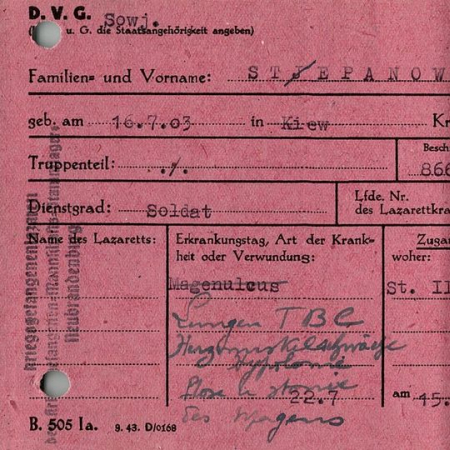 D. V. G. Sowj.
u. G. die Staatsangehörigkeit angeben)
Familien- und Vorname: STJEPANOW
geb. am 16.7.03 in Kiew
Truppenteil: ./.
Besch
866
Dienstgrad: Soldat
Lfde. Nr.
des Lazarettkra
Name des Lazaretts:
Erkrankungstag, Art der Krank-
heit oder Verwundung:
Zugan
woher:
Magenulcus
St. II
Lungen TBC
Herzmuskelschwäche
22.7
am 15.
des Magens
Kriegsgefangenenlazarett
Neubrandenburg
B. 505 Ia. 9. 43. D/0168